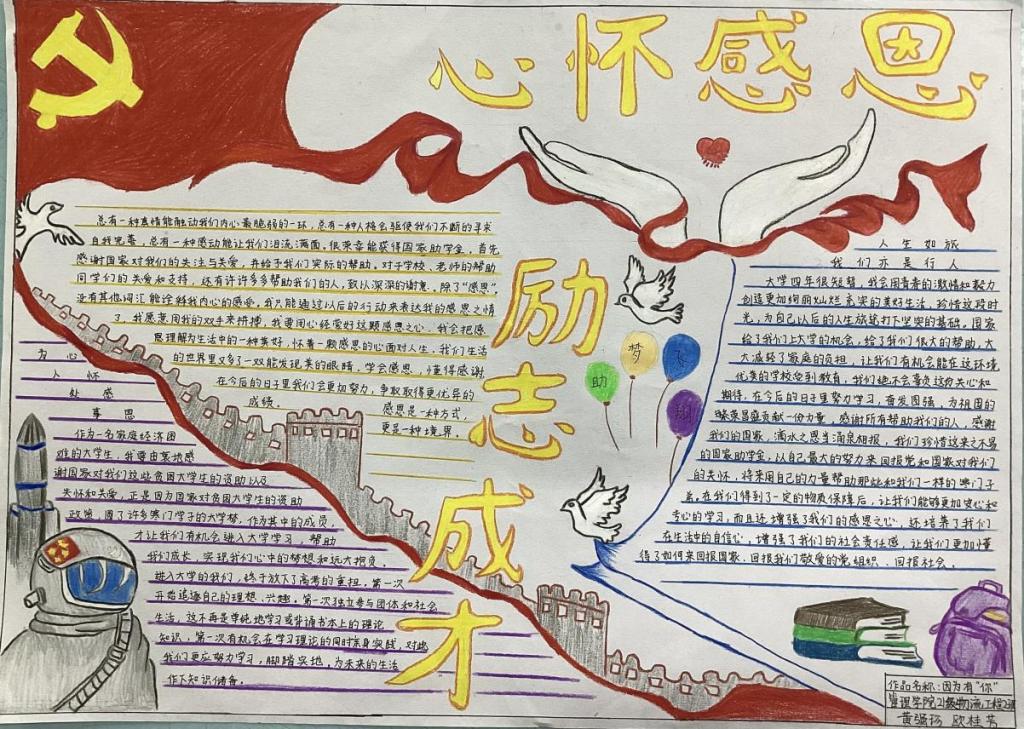 心怀感恩
励志成才
总有一种真情能触动我们内心最脆弱的一环,总有一种人格会驱使我们不断的寻求
自我完善,总有一种感动能让我们泪流满面。很荣幸能获得国家助学金,首先
感谢国家对我们的关注与关爱,并给予我们实际的帮助。对于学校、老师的帮助
同学们的关爱和支持,还有许许多多帮助我们的人,致以深深的谢意,除了“感恩”,
没有其他词汇能诠释我内心的感受。我只能通过以后的行动来表达我的感恩之情
了,我愿意用我的双手来拼搏,我要用心经营好这颗感恩之心。我会把感
恩理解为生活中的一种美好,怀着一颗感恩的心面对人生,我们生活
的世界里又多了一双能发现美的眼睛,学会感恩,懂得感谢
在今后的日子里我们会更加努力,争取取得更优异的
成绩。
感恩是一种方式,
更是一种境界。
为心
人怀
处感
事恩
作为一名家庭经济困
难的大学生,我要由衷地感
谢国家对我们这些贫困大学生的资助以及
关怀和关爱,正是因为国家对贫困大学生的资助
政策,圆了许多寒门学子的大学梦,作为其中的成员,
才让我们有机会进入大学学习,帮助
我们成长,实现我们心中的梦想和远大抱负。
进入大学的我们,终于放下了高考的重担,第一次
开始追逐自己的理想、兴趣。第一次独立参与团体和社会
生活,这不再是单纯地学习或背诵书本上的理论
知识,第一次有机会在学习理论的同时亲身实践,对此
我们更应努力学习,脚踏实地,为未来的生活
作下知识储备。
助
梦
飞
翔
人生如旅
我们亦是行人
大学四年很短暂,我会用青春的激情和毅力
创造更加绚丽灿烂充实的美好生活,珍惜这段时
光,为自己以后的人生旅途打下坚实的基础。国家
给了我们上大学的机会,给了我们很大的帮助,大
大减轻了家庭的负担,让我们有机会能在这环境
优美的学校受到教育,我们绝不会辜负这份关心和
期待,在今后的日子里努力学习,奋发图强,为祖国的
繁荣昌盛贡献一份力量。感谢所有帮助我们的人,感谢
我们的国家,滴水之恩当涌泉相报,我们珍惜这来之不易
的国家助学金,以自己最大的努力来回报党和国家对我们
的关怀,将来用自己的力量帮助那些和我们一样的寒门子
弟,在我们得到了一定的物质保障后,让我们能够更加安心和
专心的学习,而且还增强了我们的感恩之心,还培养了我们
在生活中的自信心,增强了我们的社会责任感,让我们更加懂
得了如何来回报国家,回报我们敬爱的党组织、回报社会。
作品名称:因为有“你”
管理学院21级物流工程2班
黄强珂 欧桂芳